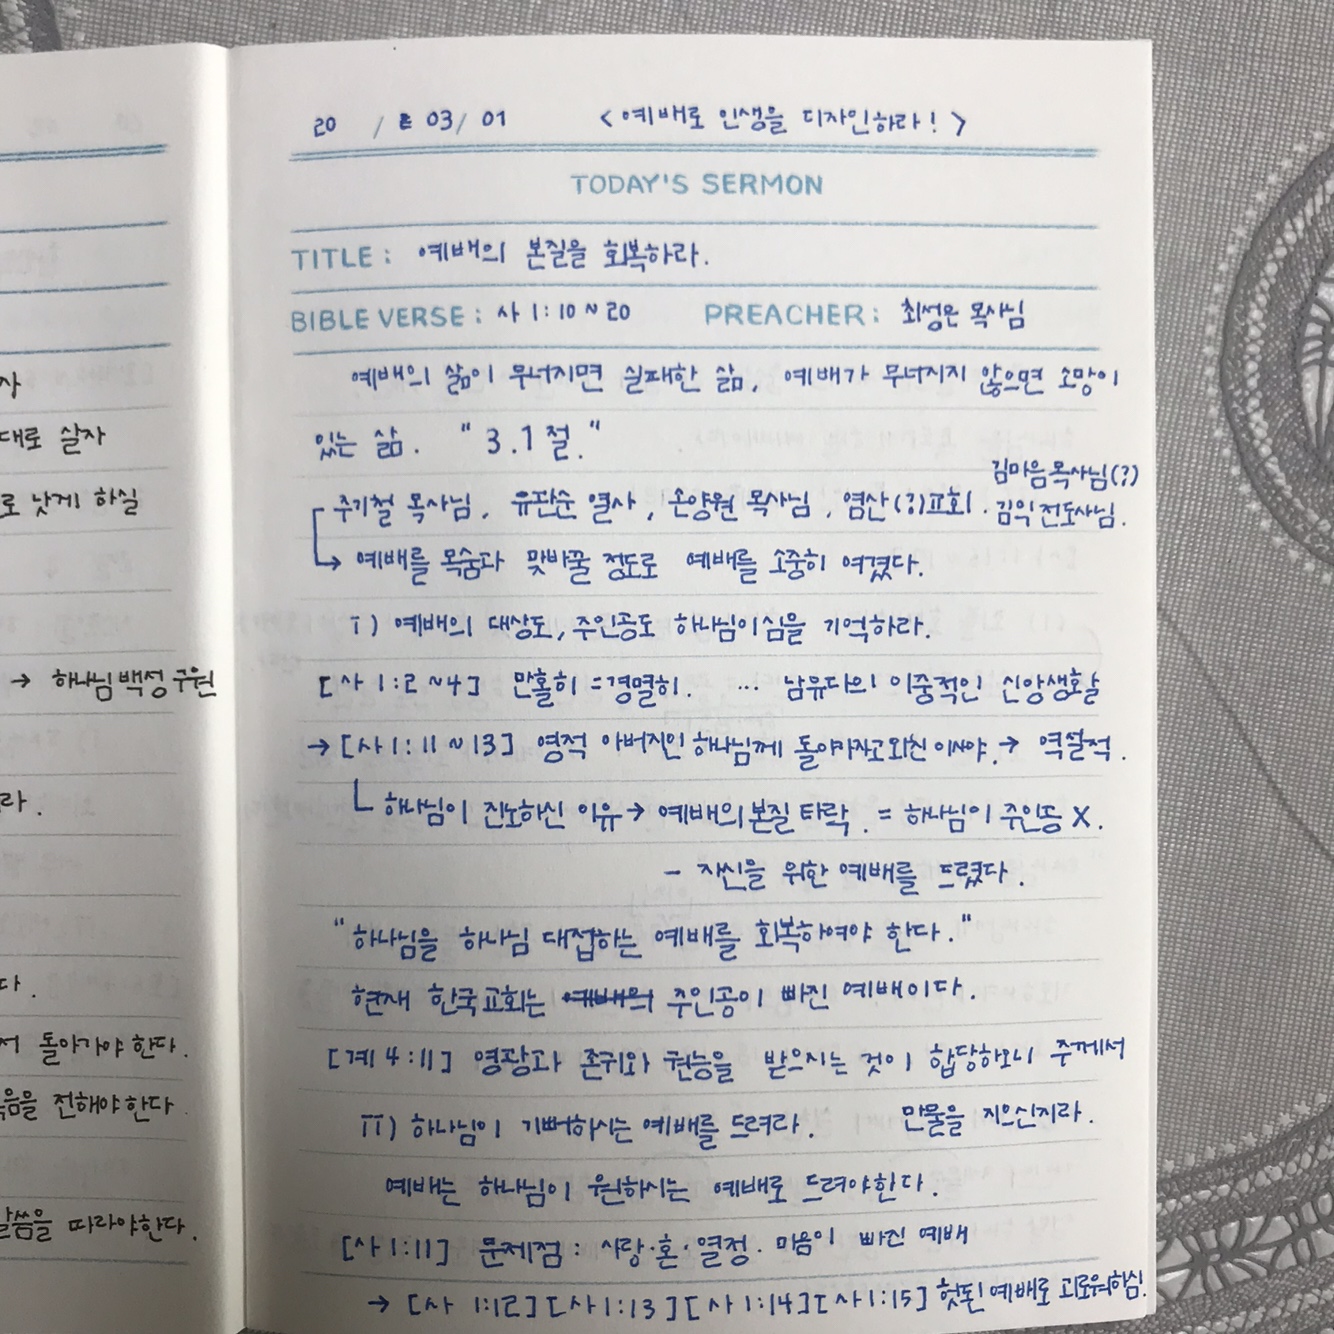 자
대로 살자
로 낫게 하실
→ 하나님 백성 구원
라.
다.
서 돌아가야 한다.
음을 전해야 한다.
말씀을 따라야한다.
20 / 03/ 01 <예배로 인생을 디자인하라!>
TODAY'S SERMON
TITLE : 예배의 본질을 회복하라.
BIBLE VERSE : 사 1:10~20 PREACHER : 최성은 목사님
예배의 삶이 무너지면 실패한 삶, 예배가 무너지지 않으면 소망이
있는 삶. "3.1절."
김마음 목사님(?)
주기철 목사님, 유관순 열사, 손양원 목사님, 염산(?)교회. 김익 전도사님.
↳ 예배를 목숨과 맞바꿀 정도로 예배를 소중히 여겼다.
i) 예배의 대상도, 주인공도 하나님이심을 기억하라.
[사 1:2~4] 만홀히 = 경멸히. ... 남유다의 이중적인 신앙생활
→ [사 1:11~13] 영적 아버지인 하나님께 돌아가자고 외친 이사야. → 역설적.
└ 하나님이 진노하신 이유 → 예배의 본질 타락. = 하나님이 주인공 X.
- 자신을 위한 예배를 드렸다.
"하나님을 하나님 대접하는 예배를 회복하여야 한다."
현재 한국교회는 예배의 주인공이 빠진 예배이다.
[계 4:11] 영광과 존귀와 권능을 받으시는 것이 합당하오니 주께서
만물을 지으신지라.
ii) 하나님이 기뻐하시는 예배를 드려라.
예배는 하나님이 원하시는 예배로 드려야한다.
[사 1:11] 문제점 : 사랑·혼·열정·마음이 빠진 예배
→ [사 1:12][사 1:13][사 1:14][사 1:15] 헛된 예배로 괴로워하심.